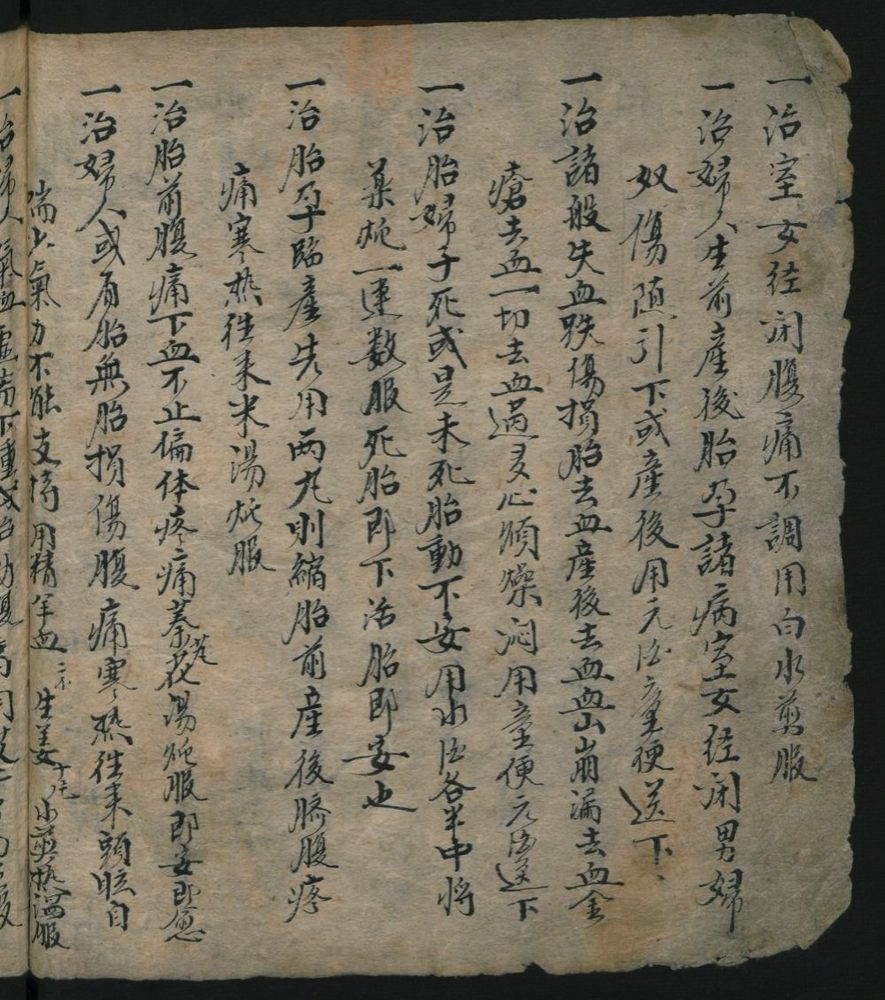 一治室女经闭腹痛不調用白水煎服
一治婦人生前產後胎孕諸病室女经闭男婦
奴傷随引下或產後用元酒童便送下
一治諸般失血跌傷損胎去血產後去血血山崩漏去血金
瘡去血一切去血過多心煩燥闷用童便元酒送下
一治胎婦子死或是未死胎動不安用水酒各半中将
藥炖一連数服死胎即下活胎即安也
一治胎孕臨產先用两丸則縮胎前產後臍腹疼
痛寒热往来米湯炖服
一治胎前腹痛下血不止偏体疼痛花湯炖服即安即愈
一治婦人或有胎無胎損傷腹痛寒热往来頭眩自
喘少氣力不能支持用精羊血二不生姜十片水煎热温服
一治婦人氣血虚